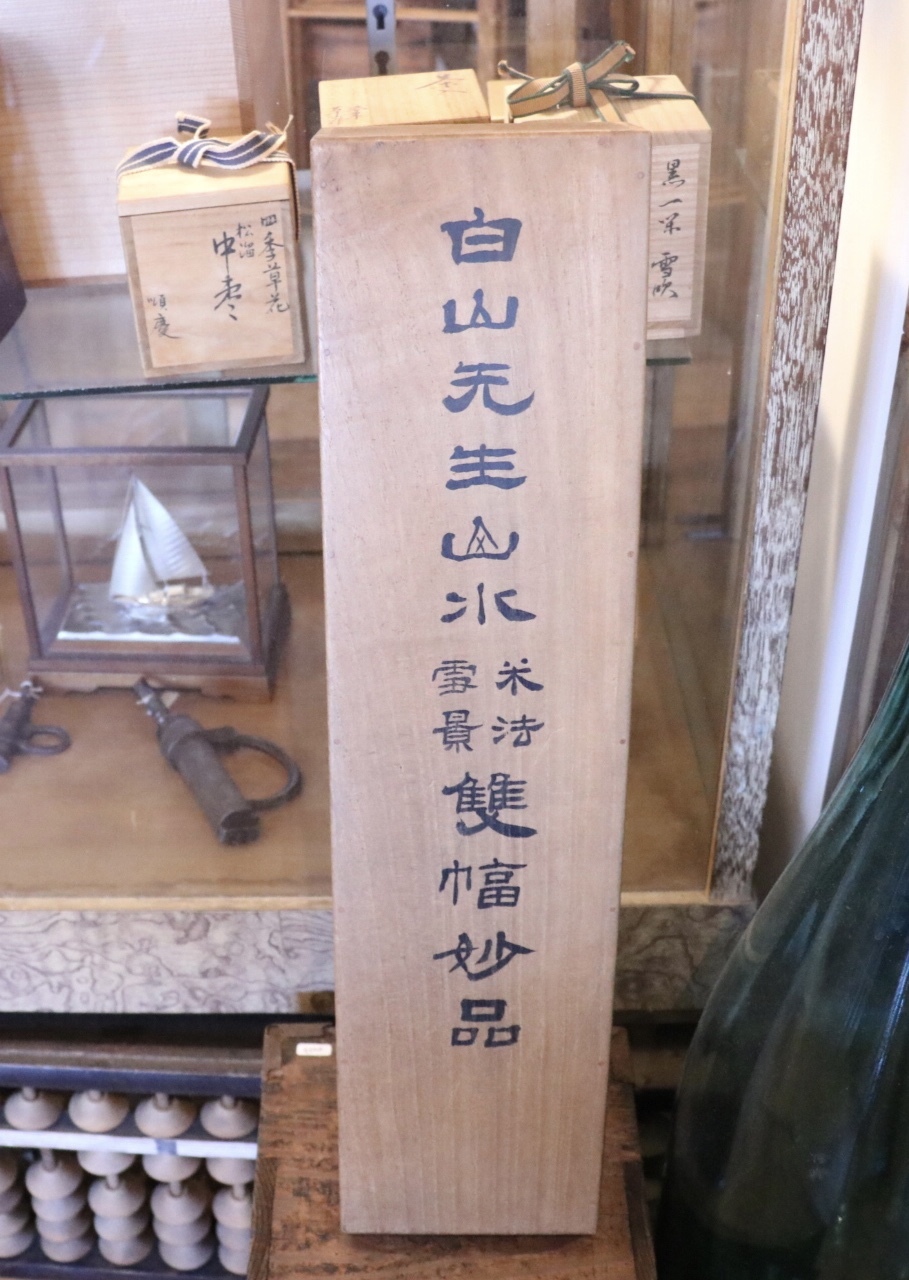 白山先生山水
米法
雪景
雙幅妙品
四季草花
松溜
中棗
頌慶
黒一閑 雪吹